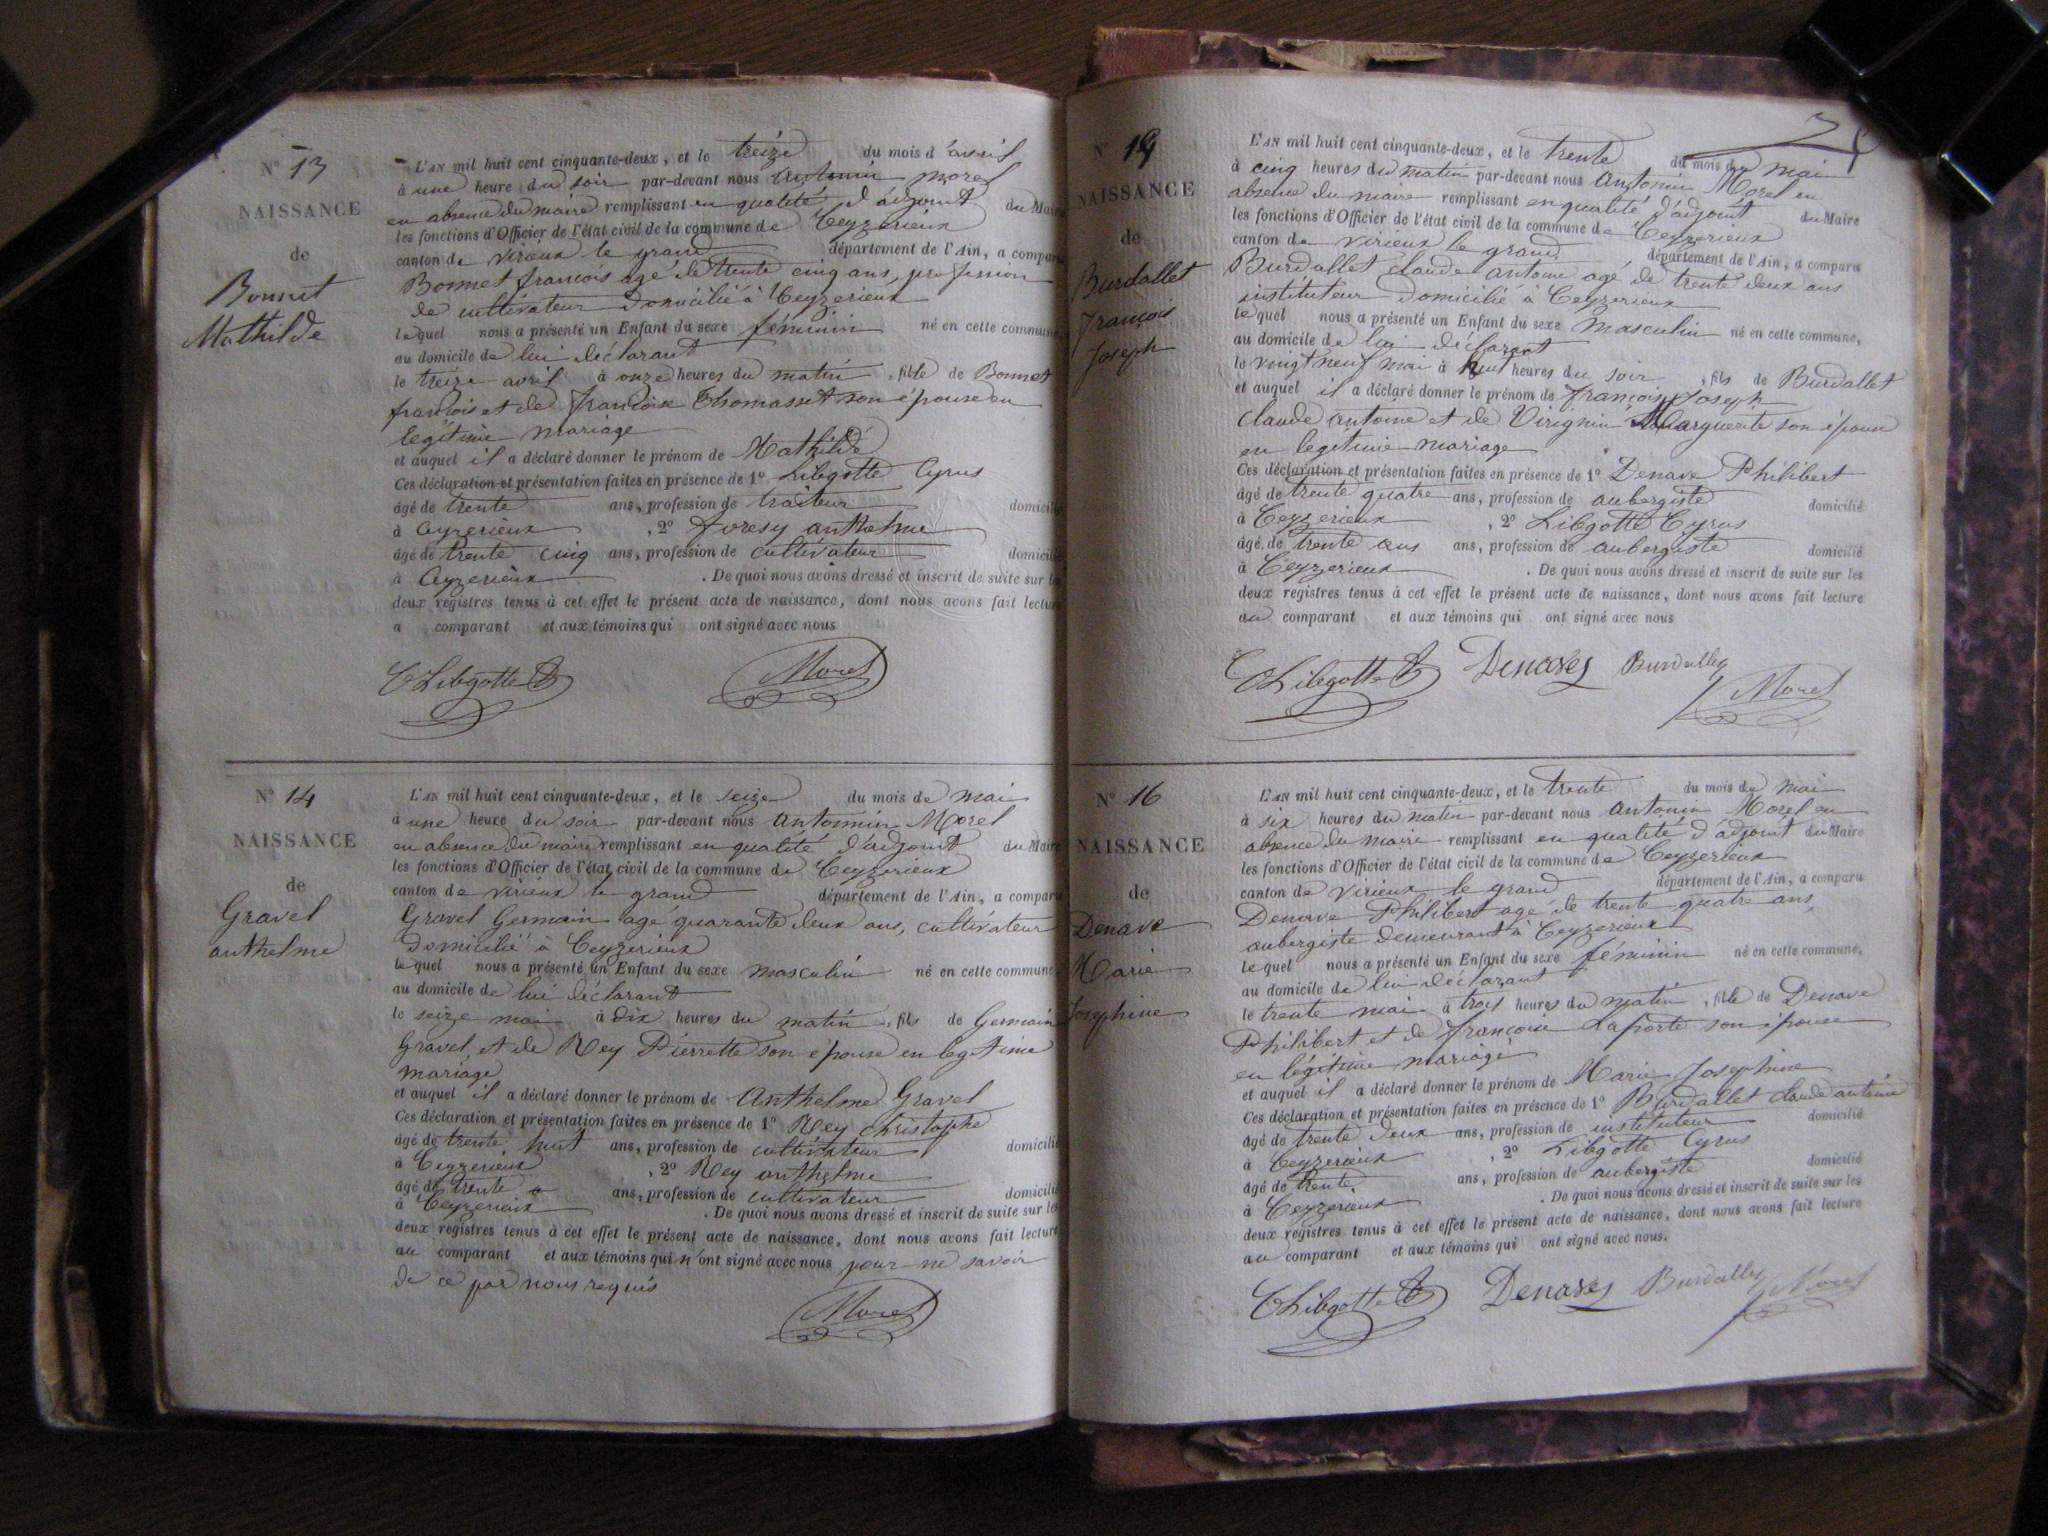 N° 13
NAISSANCE
de
Bonnet
Mathilde
L'AN mil huit cent cinquante-deux, et le treize du mois d'avril
à une heure du soir par-devant nous antonin morel
en absence du maire remplissant en qualité d'adjoint du Maire
les fonctions d'Officier de l'état civil de la commune de Ceyzerieux
canton de virieux le grand département de l'Ain, a comparu
Bonnet francois agé de trente cinq ans, profession
de cultivateur domicilié à Ceyzerieux
lequel nous a présenté un Enfant du sexe féminin né en cette commune,
au domicile de lui déclarant
le treize avril à onze heures du matin, fille de Bonnet
francois et de françoise thomasset son épouse en
legitime mariage
et auquel il a déclaré donner le prénom de Mathilde
Ces déclaration et présentation faites en présence de 1° Libgotte Cyrus
âgé de trente ans, profession de traiteur domicilié
à Ceyzerieux, 2° foresy anthelme
âgé de trente cinq ans, profession de cultivateur domicilié
à Ceyzerieux. De quoi nous avons dressé et inscrit de suite sur les
deux registres tenus à cet effet le présent acte de naissance, dont nous avons fait lecture
a comparant et aux témoins qui ont signé avec nous
CLibgotte Morel
N° 14
NAISSANCE
de
Gravel
anthelme
L'AN mil huit cent cinquante-deux, et le seize du mois de mai
à une heure du soir par-devant nous antonnin Morel
en absence du maire remplissant en qualité d'adjoint du Maire
les fonctions d'Officier de l'état civil de la commune de Ceyzerieux
canton de virieux le grand département de l'Ain, a comparu
Gravel Germain agé quarante deux ans, cultivateur
domicilié à Ceyzerieux
lequel nous a présenté un Enfant du sexe masculin né en cette commune,
au domicile de lui déclarant
le seize mai à dix heures du matin, fils de Germain
Gravel et de Rey Pierrette son épouse en legitime
mariage
et auquel il a déclaré donner le prénom de Anthelme Gravel
Ces déclaration et présentation faites en présence de 1° Rey christophe
âgé de trente huit ans, profession de cultivateur domicilié
à Ceyzerieux, 2° Rey anthelme
âgé de trente ans, profession de cultivateur domicilié
à Ceyzerieux. De quoi nous avons dressé et inscrit de suite sur les
deux registres tenus à cet effet le présent acte de naissance, dont nous avons fait lecture
au comparant et aux témoins qui n'ont signé avec nous pour ne savoir
de ce par nous requis
Morel
N° 15
NAISSANCE
de
Burdallet
François
Joseph
L'AN mil huit cent cinquante-deux, et le trente du mois de mai
à cinq heures du matin par-devant nous antonin Morel en
absence du maire remplissant en qualité d'adjoint du Maire
les fonctions d'Officier de l'état civil de la commune de Ceyzerieux
canton de virieux le grand département de l'Ain, a comparu
Burdallet claude antoine agé de trente deux ans
instituteur domicilié à Ceyzerieux
lequel nous a présenté un Enfant du sexe masculin né en cette commune,
au domicile de lui déclarant
le vingt neuf mai à huit heures du soir, fils de Burdallet
et auquel il a déclaré donner le prénom de françois Joseph
claude antoine et de Virignin Marguerite son épouse
en legitime mariage
Ces déclaration et présentation faites en présence de 1° Denave Philibert
âgé de trente quatre ans, profession de aubergiste domicilié
à Ceyzerieux, 2° Libgotte Cyrus
âgé de trente ans ans, profession de aubergiste domicilié
à Ceyzerieux. De quoi nous avons dressé et inscrit de suite sur les
deux registres tenus à cet effet le présent acte de naissance, dont nous avons fait lecture
au comparant et aux témoins qui ont signé avec nous
CLibgotte Denaves Burdallet Morel
N° 16
NAISSANCE
de
Denave
Marie
Josephine
L'AN mil huit cent cinquante-deux, et le trente du mois de mai
à six heures du matin par-devant nous antonin Morel en
absence du maire remplissant en qualité d'adjoint du Maire
les fonctions d'Officier de l'état civil de la commune de Ceyzerieux
canton de virieux le grand département de l'Ain, a comparu
Denave Philibert agé de trente quatre ans,
aubergiste demeurant à Ceyzerieux
lequel nous a présenté un Enfant du sexe féminin né en cette commune,
au domicile de lui déclarant
le trente mai à trois heures du matin, fille de Denave
Philibert et de françoise Laporte son épouse
en légitime mariage
et auquel il a déclaré donner le prénom de Marie Josephine
Ces déclaration et présentation faites en présence de 1° Burdallet claude antoine
âgé de trente deux ans, profession de instituteur domicilié
à Ceyzerieux, 2° Libgotte Cyrus
âgé de trente ans, profession de aubergiste domicilié
à Ceyzerieux. De quoi nous avons dressé et inscrit de suite sur les
deux registres tenus à cet effet le présent acte de naissance, dont nous avons fait lecture
au comparant et aux témoins qui ont signé avec nous.
CLibgotte Denaves Burdallet Morel